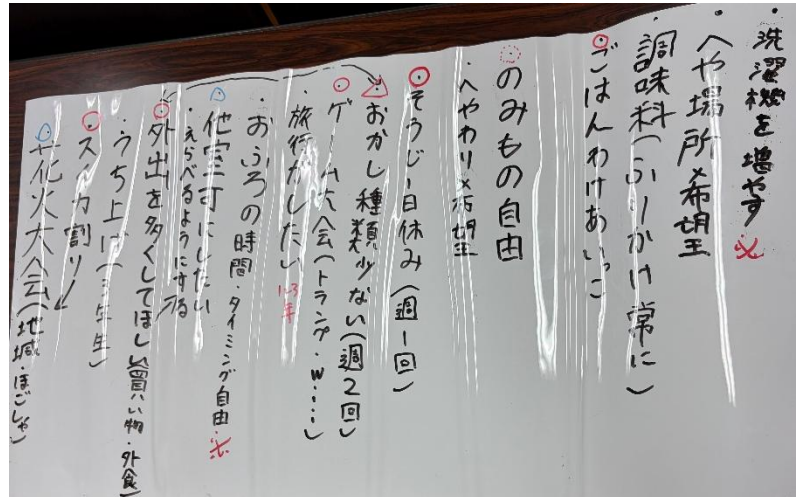 ・洗濯機を増やす ※
・へや場所×希望
・調味料(ふりかけ常に)
・ごはんわけあいっこ
・のみもの自由
・へやわり×希望
・そうじ1日休み(週1回)
・おかし種類少ない(週2回)
・ゲーム大会(トランプ・W…)
・旅行がしたい
・おふろの時間・タイミング自由 ※
・他室可にしたい
・えらべるようにする
・外出を多くしてほしい(買い物・外食)
・うち上げ(3年生)
・スイカ割り
・花火大会(地域・ほごしゃ)